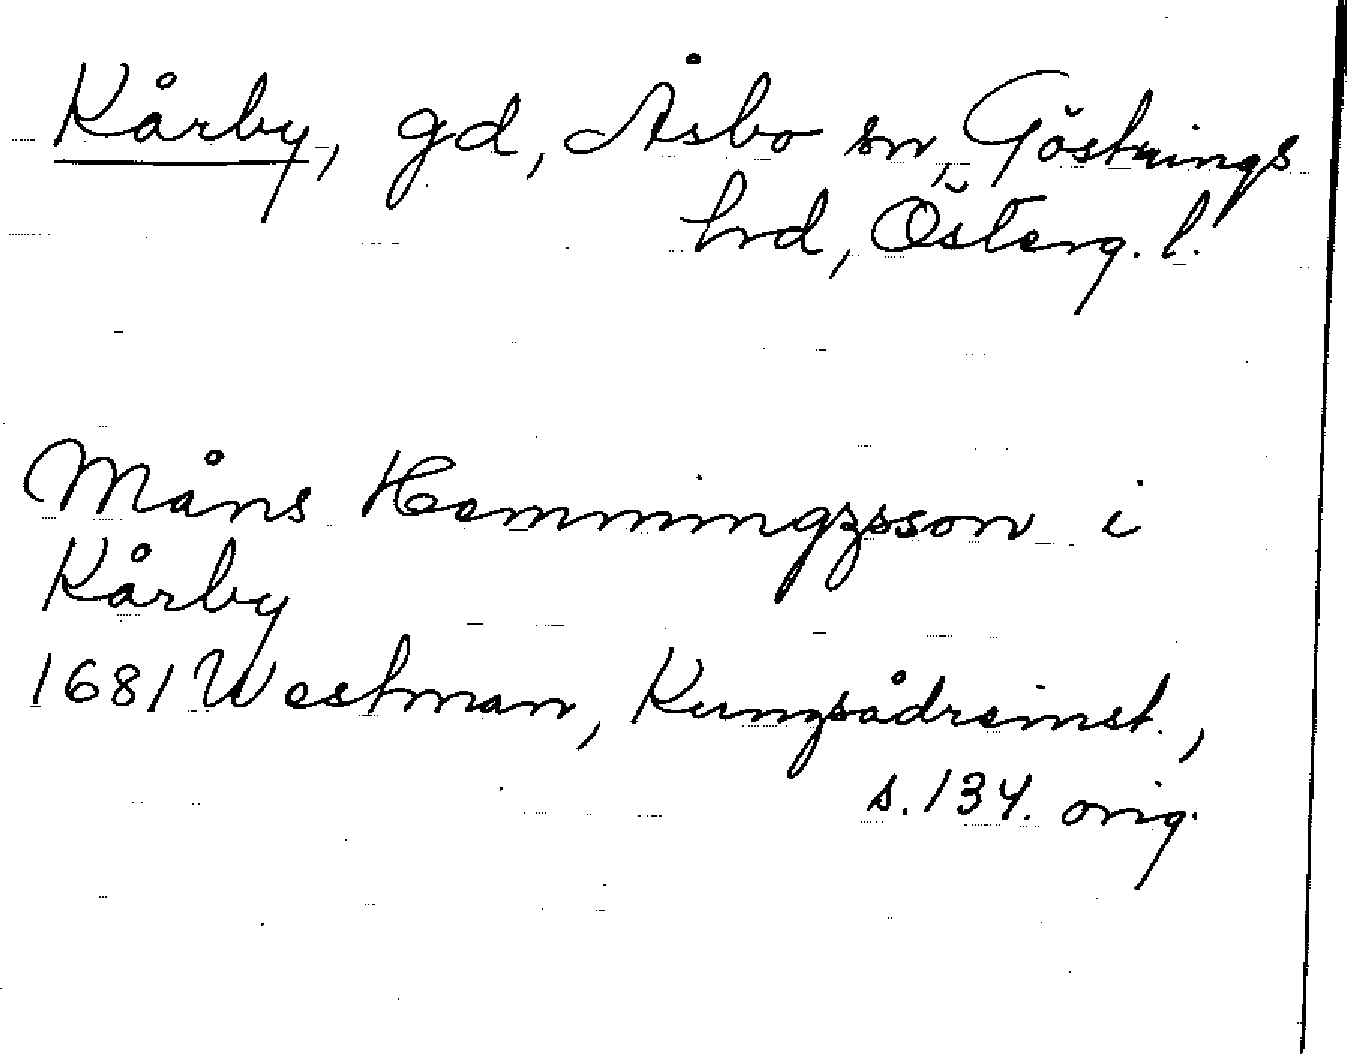 Kårby, gd, Åsbo sn, Göstrings
hrd, Österg. l.
Måns Hemmingzsson i
Kårby
1681 Westman, Kungsådreinst.,
s. 134. orig.